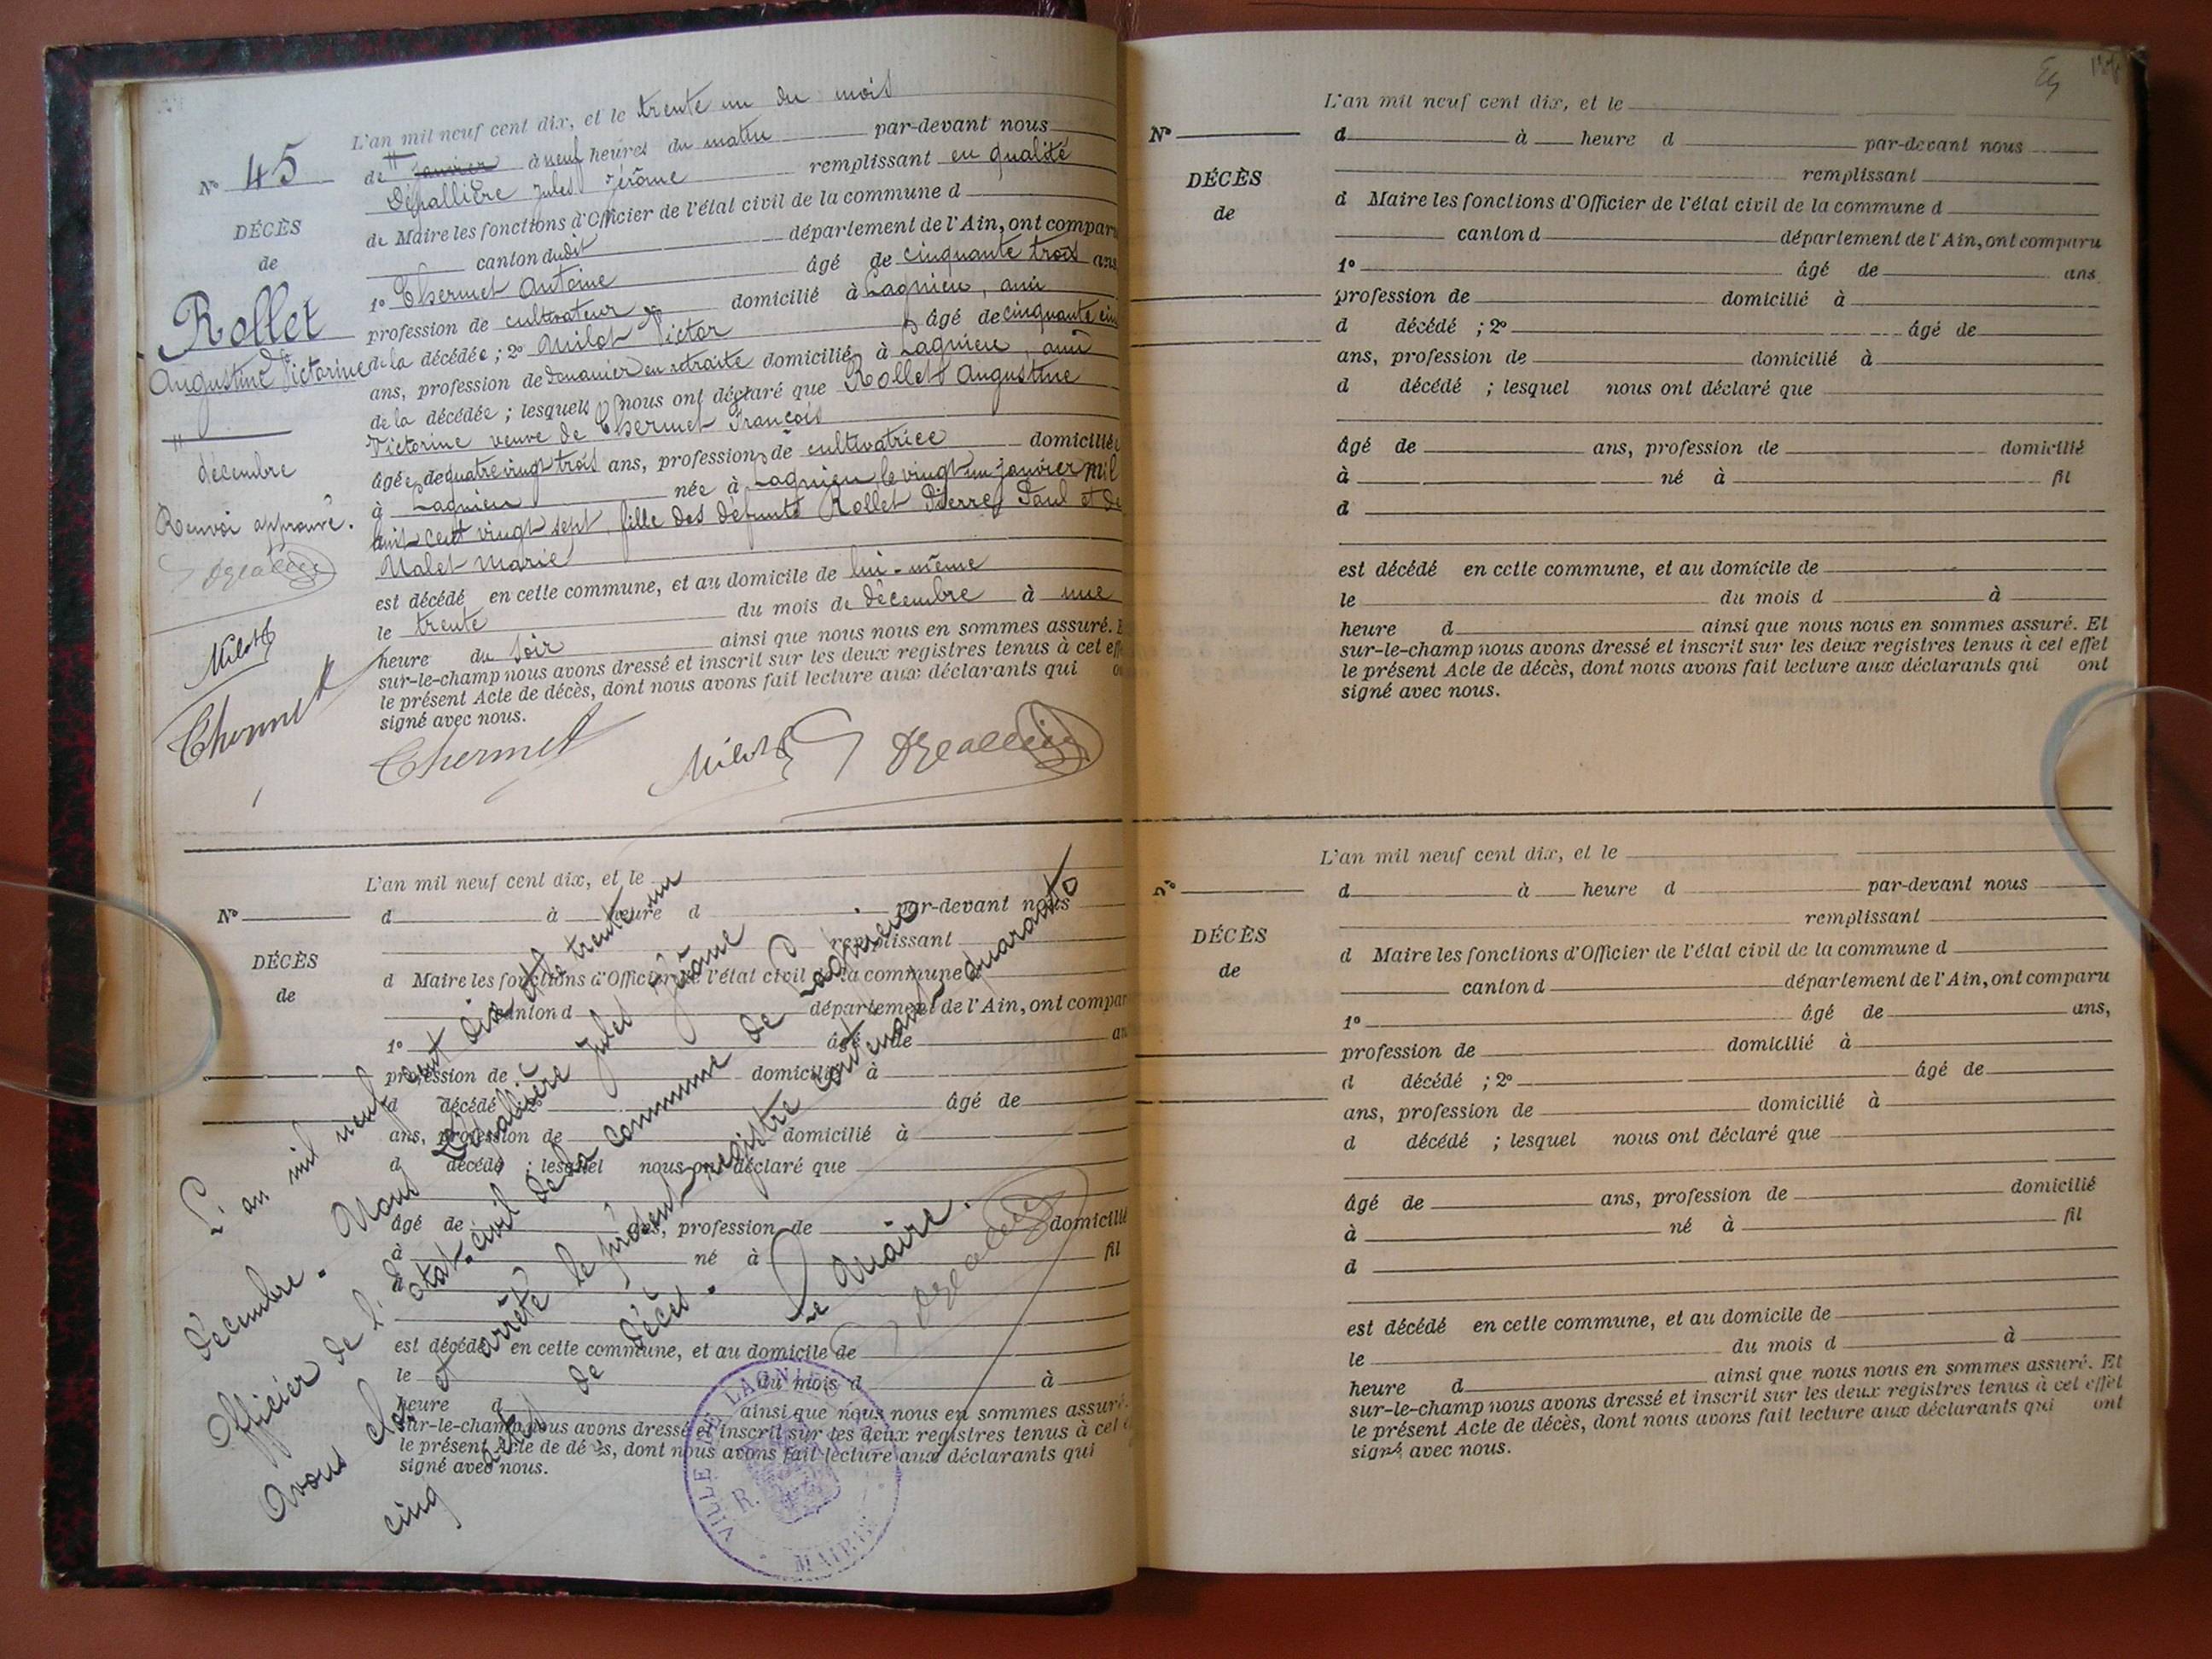 L'an mil neuf cent dix, et le trente un du mois
N° 45
de " janvier à neuf heures du matin par-devant nous
Dépallière Jules Jérôme remplissant en qualité
DÉCÈS
de Maire les fonctions d'Officier de l'état civil de la commune d
de
canton dudit département de l'Ain, ont comparu
1° Chermet Antoine âgé de cinquante trois ans
Rollet
profession de cultivateur domicilié à Lagnieu, ami
Augustine Victorine
de la décédée ; 2° Milot Victor âgé de cinquante cinq
ans, profession de douanier en retraite domicilié à Lagnieu, ami
de la décédée ; lesquels nous ont déclaré que Rollet Augustine
Victorine veuve de Chermet François
"
décembre
âgée de quatre vingt trois ans, profession de cultivatrice domiciliée
à Lagnieu née à Lagnieu, le vingt un janvier mil
Renvoi approuvé.
huit cent vingt sept, fille des défunts Rollet Pierre Paul et de
Malet Marie
est décédé en cette commune, et au domicile de lui-même
le trente du mois de décembre à une
Milot
heure du soir ainsi que nous nous en sommes assuré.
sur-le-champ nous avons dressé et inscrit sur les deux registres tenus à cet
le présent Acte de décès, dont nous avons fait lecture aux déclarants qui
signé avec nous.
Chermet
Chermet Milot
L'an mil neuf cent dix, et le
N°
d à heure d par-devant nous
remplissant
DÉCÈS
d Maire les fonctions d'Officier de l'état civil de la commune d
de
canton d département de l'Ain, ont compar
1° âgé de an
profession de domicilié à
d décédé ; 2° âgé de
ans, profession de domicilié à
d décédé ; lesquel nous ont déclaré que
âgé de ans, profession de domicilié
à né à fil
d
est décédé en cette commune, et au domicile de
le du mois d à
heure d ainsi que nous nous en sommes assuré.
sur-le-champ nous avons dressé et inscrit sur les deux registres tenus à cet
le présent Acte de décès, dont nous avons fait lecture aux déclarants qui
signé avec nous.
L'an mil neuf cent dix et le trente un
décembre. Nous Dépallière Jules Jérôme
Officier de l'état-civil de la commune de Lagnieu
Avons clos et arrêté le présent registre contenant quarante
cinq actes de décès.
Le Maire.
VILLE DE LAGNIEU
R.
MAIRIE
L'an mil neuf cent dix, et le
N°
d à heure d par-devant nous
remplissant
DÉCÈS
d Maire les fonctions d'Officier de l'état civil de la commune d
de
canton d département de l'Ain, ont comparu
1° âgé de ans
profession de domicilié à
d décédé ; 2° âgé de
ans, profession de domicilié à
d décédé ; lesquel nous ont déclaré que
âgé de ans, profession de domicilié
à né à fil
d
est décédé en cette commune, et au domicile de
le du mois d à
heure d ainsi que nous nous en sommes assuré. Et
sur-le-champ nous avons dressé et inscrit sur les deux registres tenus à cet effet
le présent Acte de décès, dont nous avons fait lecture aux déclarants qui ont
signé avec nous.
L'an mil neuf cent dix, et le
N°
d à heure d par-devant nous
remplissant
DÉCÈS
d Maire les fonctions d'Officier de l'état civil de la commune d
de
canton d département de l'Ain, ont comparu
1° âgé de ans,
profession de domicilié à
d décédé ; 2° âgé de
ans, profession de domicilié à
d décédé ; lesquel nous ont déclaré que
âgé de ans, profession de domicilié
à né à fil
d
est décédé en cette commune, et au domicile de
le du mois d à
heure d ainsi que nous nous en sommes assuré. Et
sur-le-champ nous avons dressé et inscrit sur les deux registres tenus à cet effet
le présent Acte de décès, dont nous avons fait lecture aux déclarants qui ont
signé avec nous.